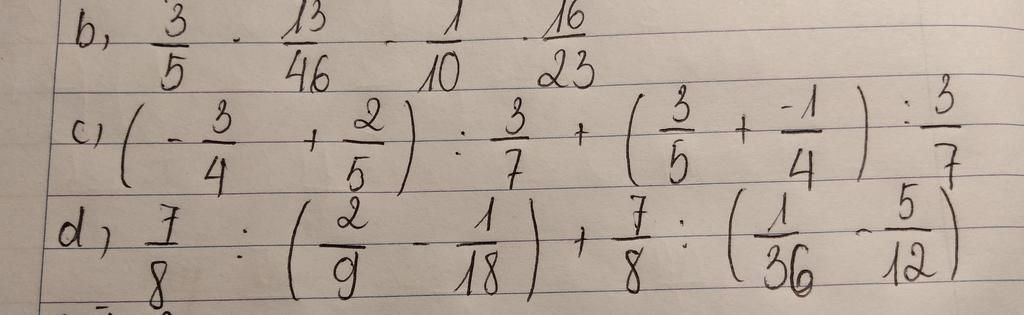 b, 3/5 . 13/46 - 1/10 . 16/23
c) (-3/4 + 2/5) : 3/7 + (3/5 + -1/4) : 3/7
d) 7/8 : (2/9 - 1/18) + 7/8 : (1/36 - 5/12)